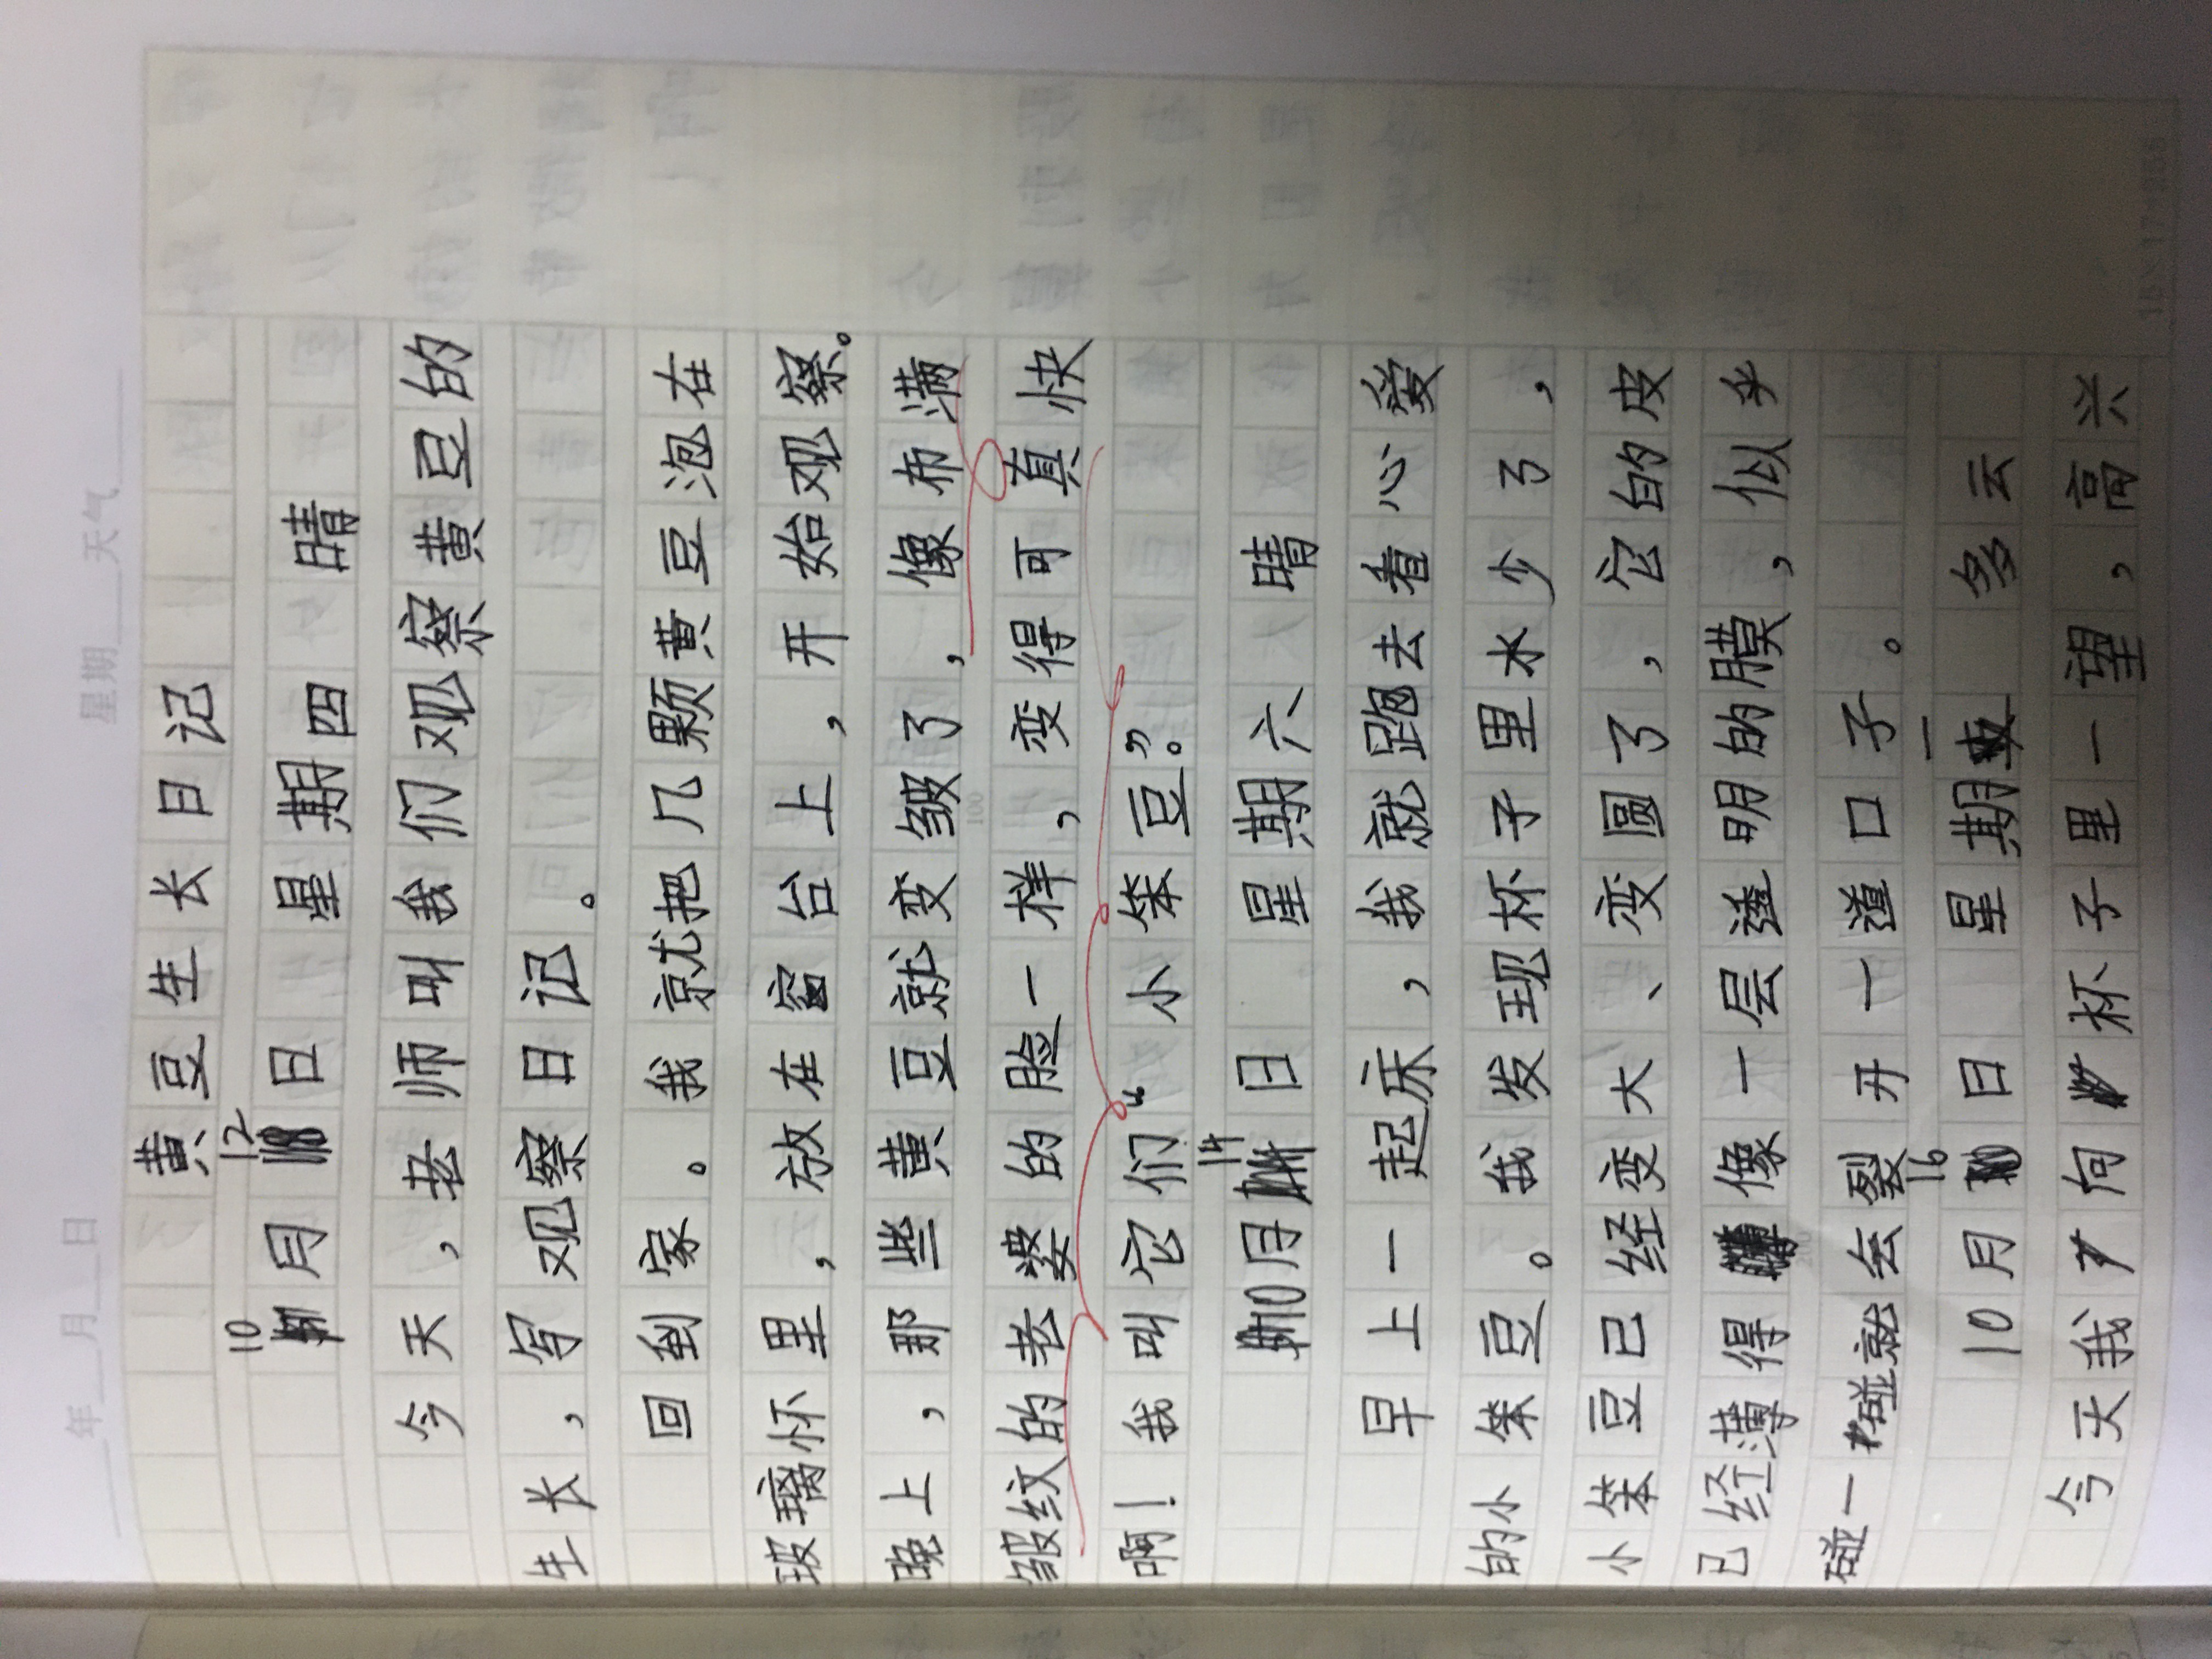 年 月 日 星期 天气
黄豆生长日记
10月12日 星期四 晴
今天，老师叫我们观察黄豆的
生长，写观察日记。
回到家。我就把几颗黄豆泡在
玻璃怀里，放在窗台上，开始观察。
晚上，那些黄豆就变皱了，像布满
皱纹的老婆的脸一样，变得可真快
啊！我叫它们“小笨豆”。
10月14日 星期六 晴
早上一起床，我就跑去看心爱
的小笨豆。我发现杯子里水少了，
小笨豆已经变大、变圆了，它的皮
已经薄得像一层透明的膜，似乎
碰一碰就会裂开一道口子。
10月16日 星期一 多云
今天我向杯子里一望，高兴